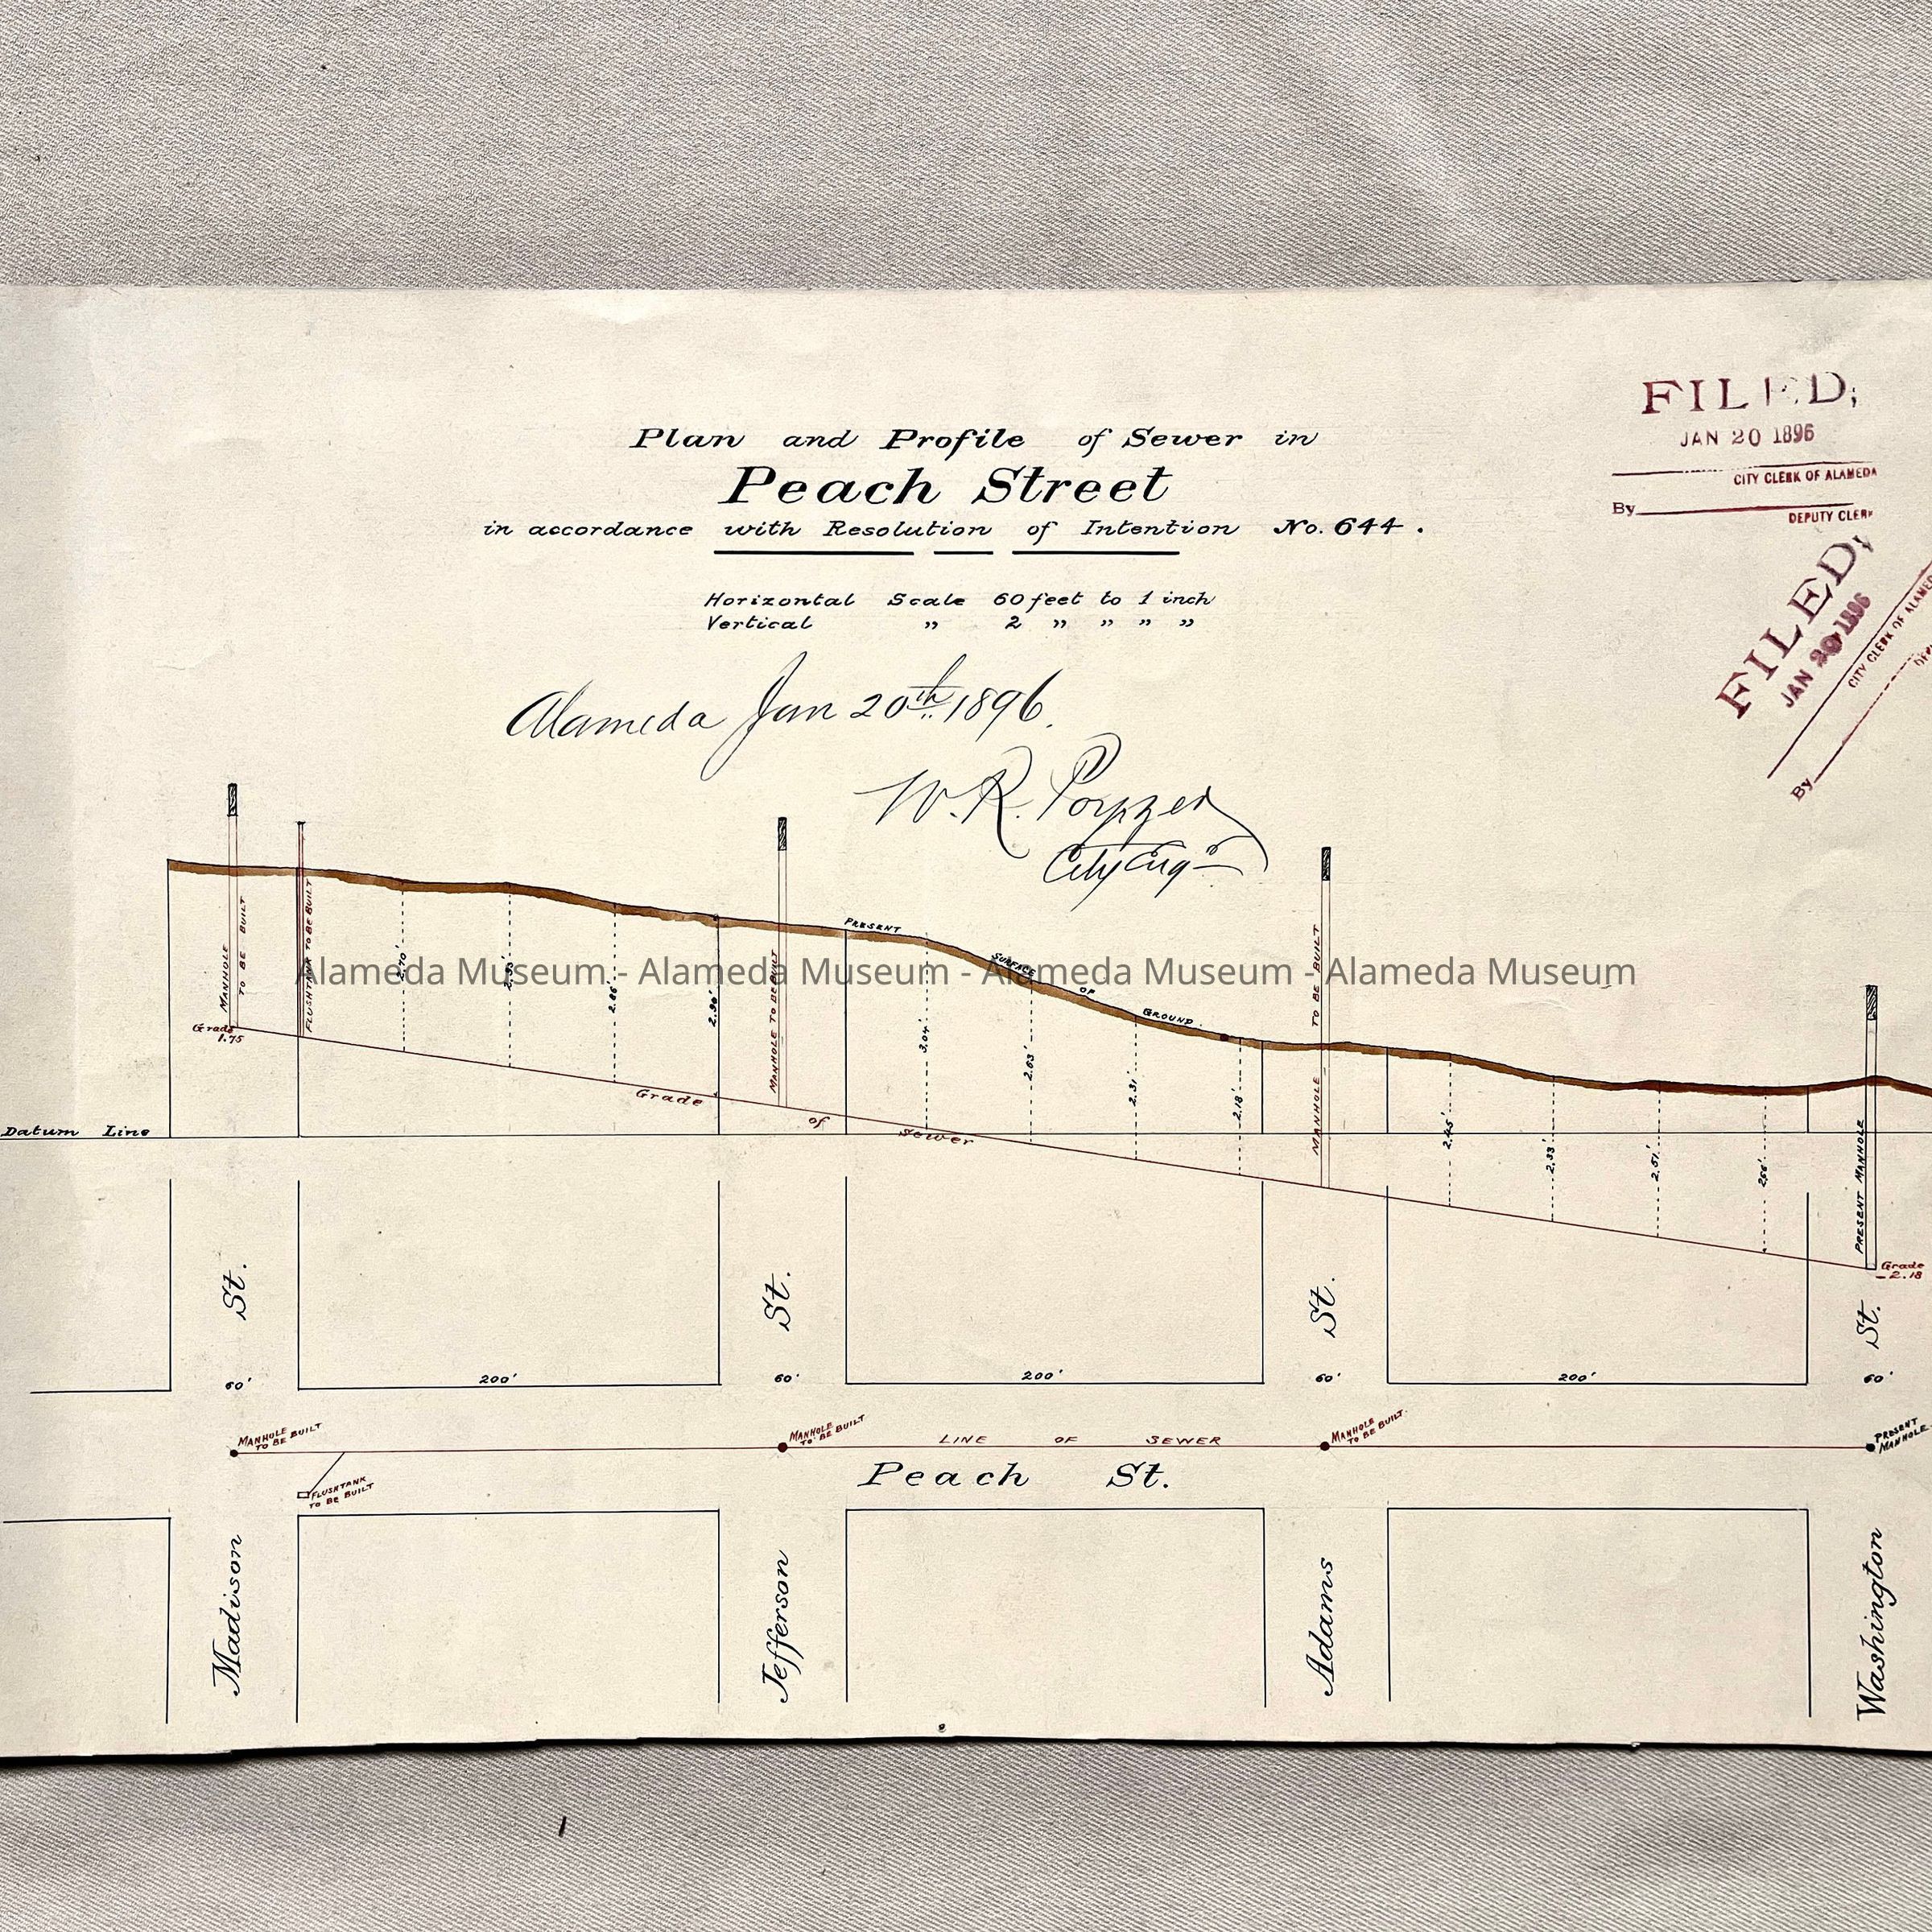 Plan and Profile of Sewer in
Peach Street
in accordance with Resolution of Intention No. 644.
Horizontal Scale 60 feet to 1 inch
Vertical " 2 " " " "
Alameda Jan 20th 1896.
W. R.
City Eng
FILED;
JAN 20 1896
CITY CLERK OF ALAMEDA
By
DEPUTY CLERK
FILED;
JAN 20 1896
CITY CLERK OF ALAMED
By
MANHOLE TO BE BUILT
FLUSHTANK TO BE BUILT
2.70'
2.86'
2.96'
MANHOLE TO BE BUILT
PRESENT SURFACE OF GROUND.
3.04'
2.63'
2.31'
2.18'
MANHOLE TO BE BUILT
2.45'
2.33'
2.51'
2.56'
PRESENT MANHOLE
Alameda Museum - Alameda Museum - Alameda Museum - Alameda Museum
Grade
1.75
Grade of Sewer
Datum Line
Grade
-2.18
St. St. St. St.
60' 200' 60' 200' 60' 200' 60'
MANHOLE
TO BE BUILT
MANHOLE
TO BE BUILT
LINE OF SEWER
MANHOLE
TO BE BUILT.
PRESENT
MANHOLE
Peach St.
FLUSHTANK
TO BE BUILT
Madison
Jefferson
Adams
Washington